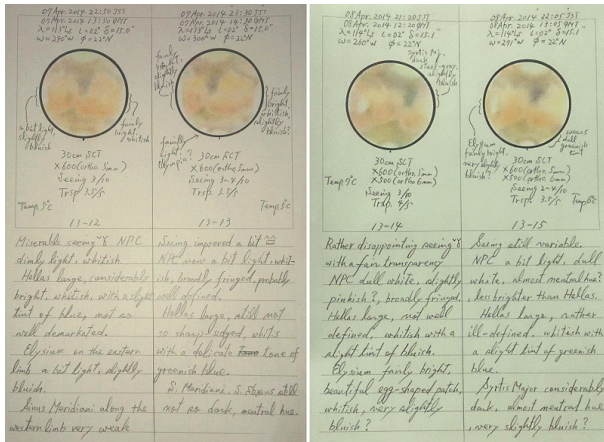 07 Apr. 2014 22:50 JST
07 Apr. 2014 13:50 GMT
λ=113°Ls ι=02° δ=15.0"
ω=290°W φ=22°N
a bit light,
slightly
bluish
fairly
bright,
whitish
30cm SCT
×600 (ortho. 5mm)
Seeing 3/10
Trsp. 3.5/5
Temp. 5°C
13-12
Miserable seeing NPC
dimly light, whitish.
Hellas large, considerably
bright, whitish, with a slight
tint of blue, not so
well demarkated.
Elysium on the eastern
limb a bit light, slightly
bluish.
Sinus Meridiani along the
western limb very weak
07 Apr. 2014 23:30 JST
07 Apr. 2014 14:30 GMT
λ=113°Ls ι=02° δ=15.0"
ω=300°W φ=22°N
fairly
bright,
slightly
bluish
fairly
bright,
whitish,
slightly
bluish?
faintly
light:
Olympia?
30cm SCT
×600 (ortho. 5mm)
Seeing 3-4/10
Trsp. 3.5/5
Temp. 5°C
13-13
Seeing improved a bit
NPC now a bit light, whit-
ish, broadly fringed, probably
well defined.
Hellas large, still not
so sharp edged, white
with a delicate tone of
greenish blue.
S. Meridiani, S. Sabaeus still
not so dark, neutral hue.
08 Apr. 2014 21:20 JST
08 Apr. 2014 12:20 GMT
λ=114°Ls ι=02° δ=15.1"
ω=260°W φ=22°N
Syrtis Maj.
dark
slightly
bluish?
30cm SCT
×600 (ortho. 5mm)
×500 (ortho 6mm)
Seeing 3/10
Trsp. 4/5
Temp 7°C
13-14
Rather disappointing seeing
with a fair transparency.
NPC dull white, slightly
pinkish?, broadly fringed.
Hellas large, not well
defined, whitish with a
slight tint of bluish.
Elysium fairly bright,
beautiful egg-shaped patch,
whitish, very slightly
bluish?
08 Apr. 2014 22:05 JST
08 Apr. 2014 13:05 GMT
λ=114°Ls ι=02° δ=15.1"
ω=291°W φ=22°N
Elysium
fairly bright,
very slightly
bluish?
dull
greenish
tint
30cm SCT
×600 (ortho. 5mm)
×500 (ortho 6mm)
Seeing 2-4/10
Trsp. 3.5/5
Temp 6°C
13-15
Seeing still variable.
NPC a bit light, dull
white, almost neutral hue?
, less brighter than Hellas.
Hellas large, rather
ill-defined, whitish with
a slight tint of greenish
blue.
Syrtis Major considerably
dark, almost neutral hue
, very slightly bluish?